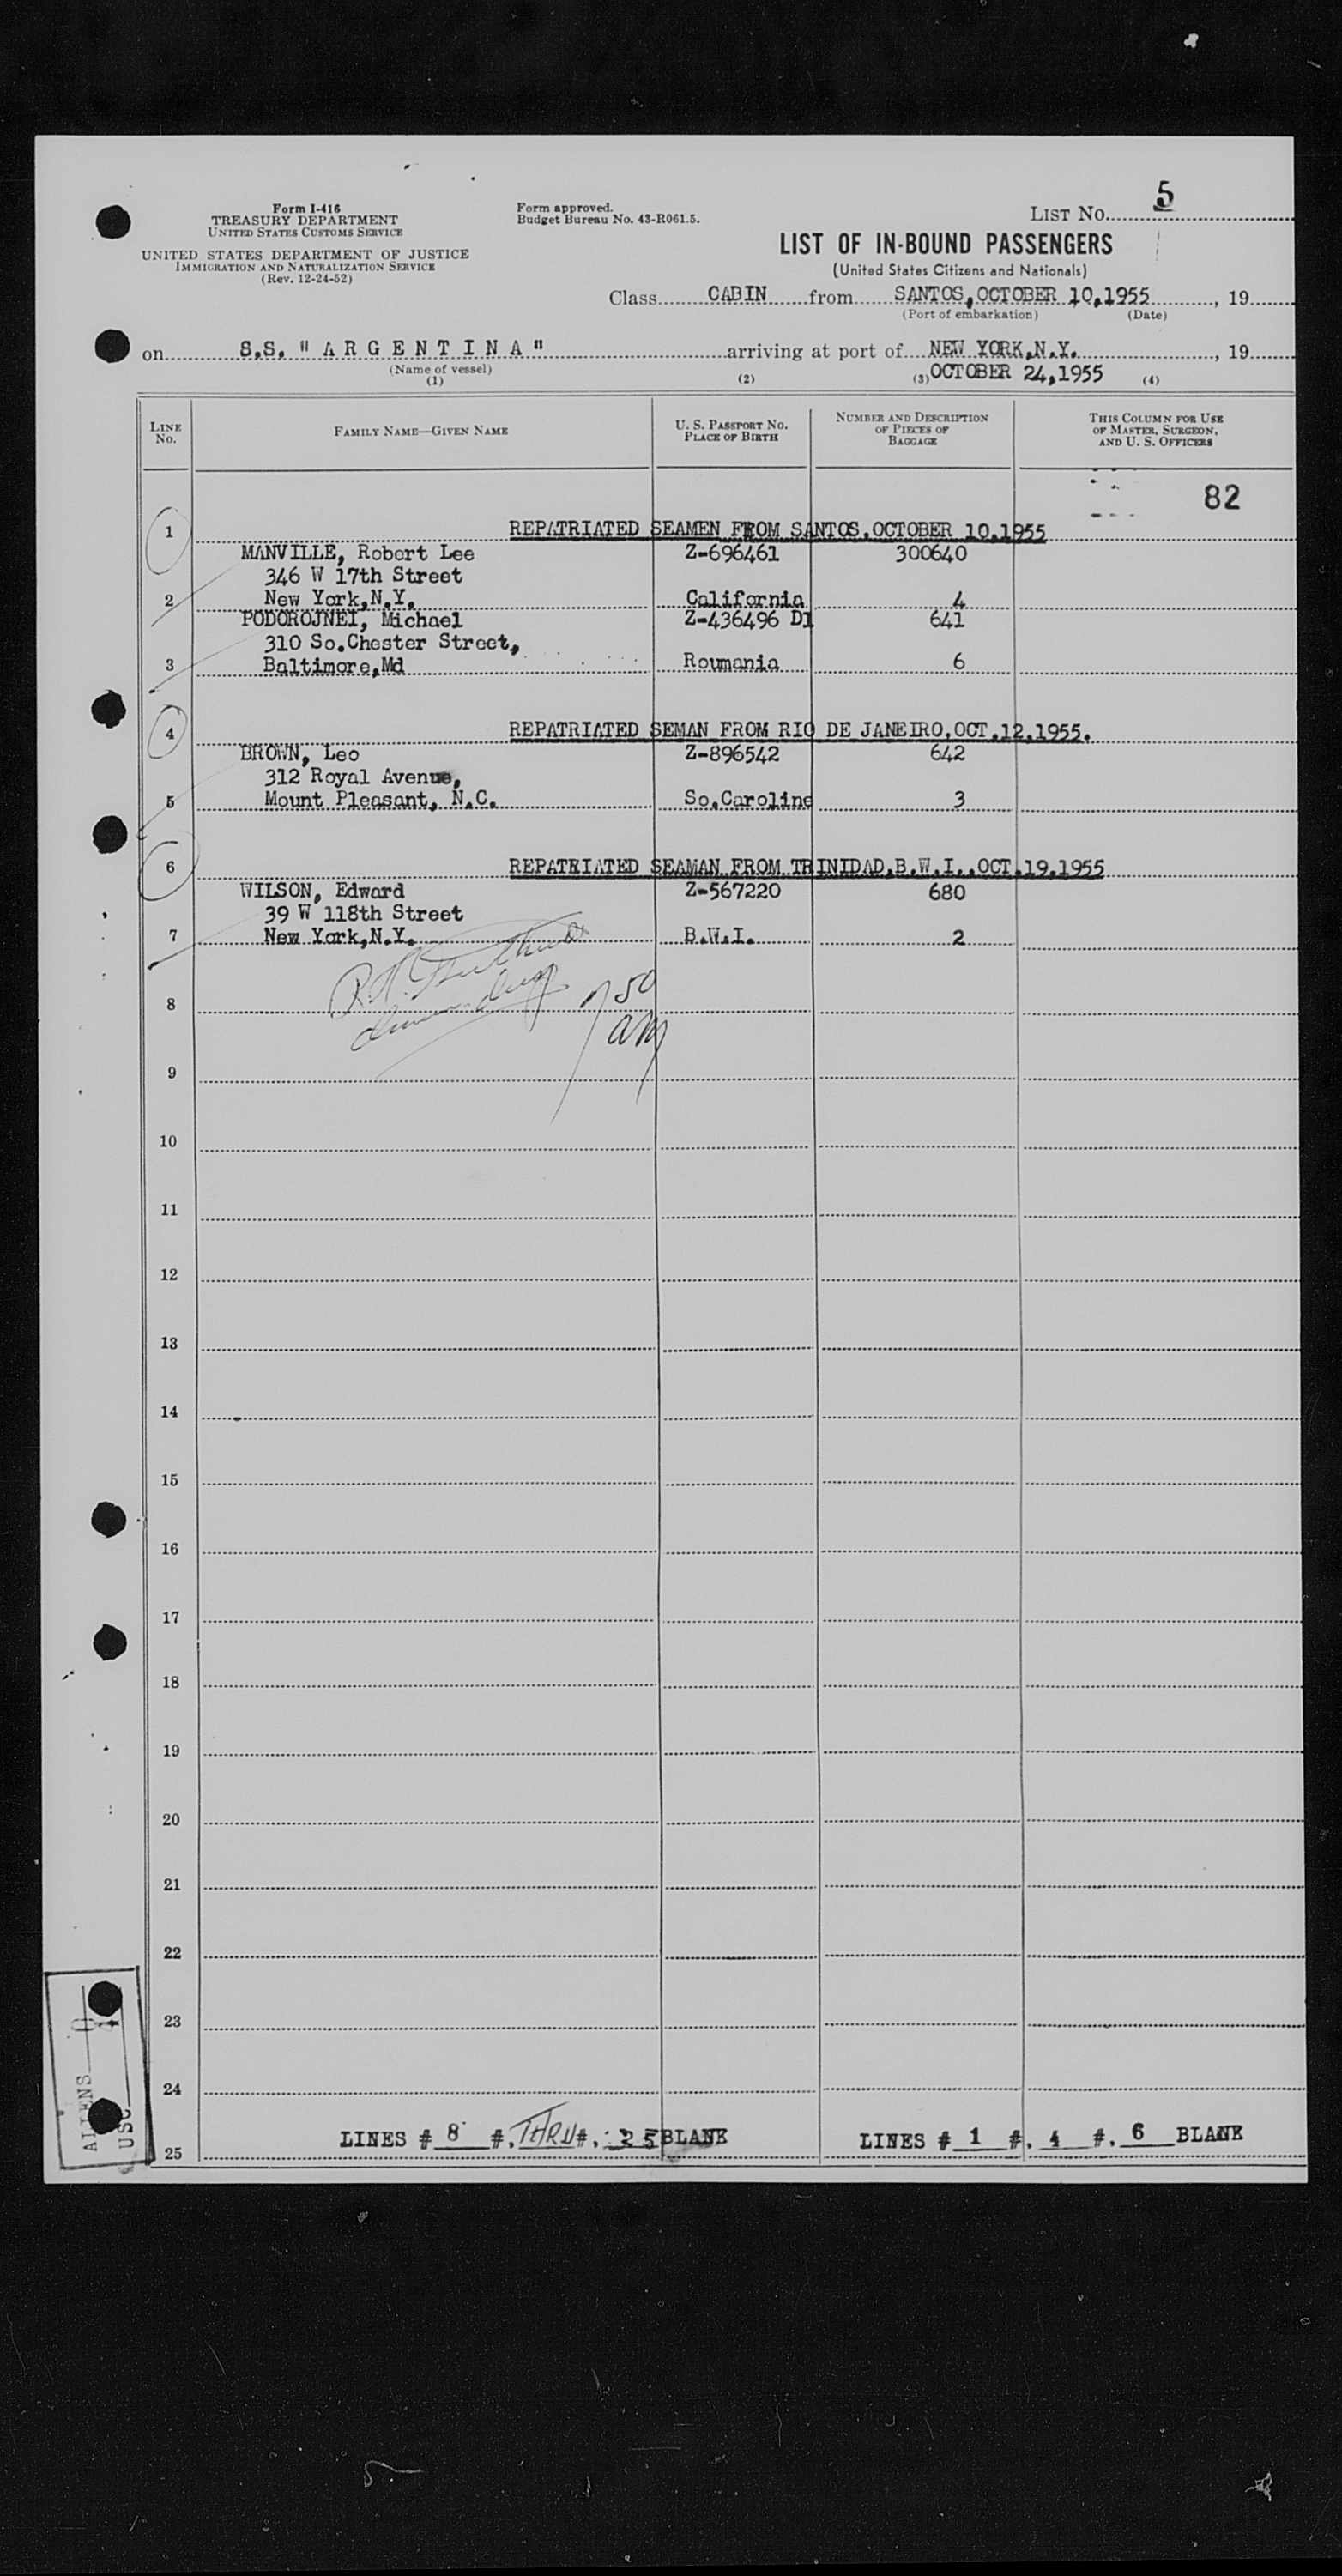 Form I-416
TREASURY DEPARTMENT
UNITED STATES CUSTOMS SERVICE
UNITED STATES DEPARTMENT OF JUSTICE
IMMIGRATION AND NATURALIZATION SERVICE
(Rev. 12-24-52)
Form approved.
Budget Bureau No. 43-R061.5.
LIST No. 5
LIST OF IN-BOUND PASSENGERS
(United States Citizens and Nationals)
Class CABIN from SANTOS, OCTOBER 10, 1955, 19
(Port of embarkation) (Date)
on S.S. "ARGENTINA" arriving at port of NEW YORK, N.Y., 19
(Name of vessel) OCTOBER 24, 1955
(1) (2) (3) (4)
LINE No. FAMILY NAME—GIVEN NAME U. S. PASSPORT No. PLACE OF BIRTH NUMBER AND DESCRIPTION OF PIECES OF BAGGAGE THIS COLUMN FOR USE OF MASTER, SURGEON, AND U. S. OFFICERS
82
1 REPATRIATED SEAMEN FROM SANTOS, OCTOBER 10, 1955
MANVILLE, Robert Lee Z-696461 300640
346 W 17th Street
2 New York, N.Y. California 4
PODOROJNEI, Michael Z-436496 D1 641
310 So. Chester Street,
3 Baltimore, Md Roumania 6
4 REPATRIATED SEMAN FROM RIO DE JANEIRO, OCT. 12, 1955.
BROWN, Leo Z-896542 642
312 Royal Avenue,
5 Mount Pleasant, N.C. So. Caroline 3
6 REPATRIATED SEAMAN FROM TRINIDAD, B.W.I., OCT. 19, 1955
WILSON, Edward Z-567220 680
39 W 118th Street
7 New York, N.Y. B.W.I. 2
8 7 50
am
9
10
11
12
13
14
15
16
17
18
19
20
21
22
23
24
LINES # 8 #, THRU #, 25 BLANK LINES # 1 #, 4 #, 6 BLANK
25
ALIENS 0
USC 4